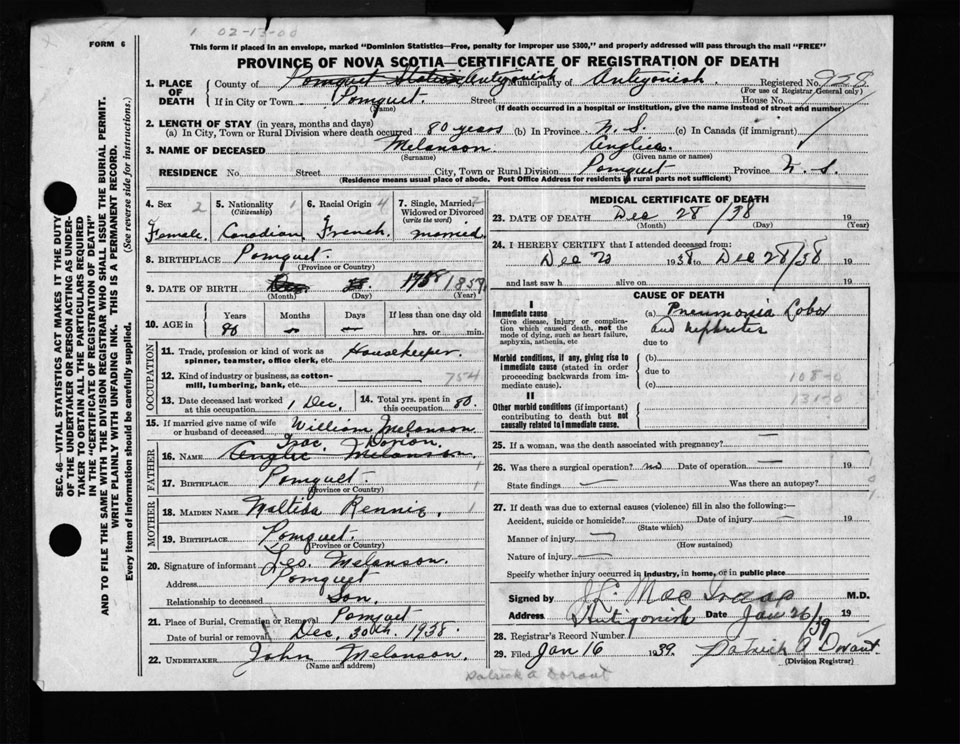 1 02-13-00
FORM 6
This form if placed in an envelope, marked "Dominion Statistics—Free, penalty for improper use $300," and properly addressed will pass through the mail "FREE"
PROVINCE OF NOVA SCOTIA—CERTIFICATE OF REGISTRATION OF DEATH
1. PLACE OF DEATH County of Pomquet Station Antigonish Municipality of Antigonish Registered No. 958
(For use of Registrar General only)
If in City or Town Pomquet. Street House No.
(Name) (If death occurred in a hospital or institution, give the name instead of street and number)
2. LENGTH OF STAY (in years, months and days)
(a) In City, Town or Rural Division where death occurred 80 years (b) In Province N. S. (c) In Canada (if immigrant)
3. NAME OF DECEASED Melanson Anglic
(Surname) (Given name or names)
RESIDENCE No. Street City, Town or Rural Division Pomquet Province N. S.
(Residence means usual place of abode. Post Office Address for residents of rural parts not sufficient)
4. Sex 2 Female.
5. Nationality 1 (Citizenship) Canadian
6. Racial Origin 4 French.
7. Single, Married, 2 Widowed or Divorced (write the word) married
8. BIRTHPLACE Pomquet.
(Province or Country)
9. DATE OF BIRTH Dec 28 1758 1858
(Month) (Day) (Year)
10. AGE in Years Months Days If less than one day old
80 – – hrs. or min.
OCCUPATION
11. Trade, profession or kind of work as spinner, teamster, office clerk, etc. Housekeeper.
12. Kind of industry or business, as cotton-mill, lumbering, bank, etc. 754
13. Date deceased last worked at this occupation. 1 Dec. 14. Total yrs. spent in this occupation. 80.
15. If married give name of wife or husband of deceased William Melanson
FATHER
Isac Dorion.
16. NAME Anglic Melanson.
17. BIRTHPLACE Pomquet. 1
(Province or Country)
MOTHER
18. MAIDEN NAME Maltida Rennie, 1
19. BIRTHPLACE Pomquet.
(Province or Country)
20. Signature of informant Leo. Melanson.
Address Pomquet
Relationship to deceased Son.
21. Place of Burial, Cremation or Removal Pomquet
Date of burial or removal Dec, 30th. 1938.
22. UNDERTAKER John Melanson.
(Name and address)
MEDICAL CERTIFICATE OF DEATH
23. DATE OF DEATH Dec 28/38 19
(Month) (Day) (Year)
24. I HEREBY CERTIFY that I attended deceased from:
Dec 1938 to Dec 28/38 19
and last saw h alive on 19
CAUSE OF DEATH
I
Immediate cause
Give disease, injury or complication which caused death, not the mode of dying, such as heart failure, asphyxia, asthenia, etc
(a) Pneumonia Lobar
and Nephritis
due to
Morbid conditions, if any, giving rise to immediate cause (stated in order proceeding backwards from immediate cause).
(b)
due to
(c) 108-0
II
131-0
Other morbid conditions (if important) contributing to death but not causally related to immediate cause.
25. If a woman, was the death associated with pregnancy? —
26. Was there a surgical operation? no Date of operation — 19
State findings — Was there an autopsy?
27. If death was due to external causes (violence) fill in also the following:—
Accident, suicide or homicide? Date of injury — 19
(State which)
Manner of injury —
(How sustained)
Nature of injury —
Specify whether injury occurred in industry, in home, or in public place
Signed by M.D.
Address Antigonish Date Jan 26/39 19
28. Registrar's Record Number
29. Filed Jan 16 1939. Patrick A Dorant.
(Division Registrar)
Patrick A Dorant
SEC. 46—VITAL STATISTICS ACT MAKES IT THE DUTY OF THE UNDERTAKER OR PERSON ACTING AS UNDERTAKER TO OBTAIN ALL THE PARTICULARS REQUIRED IN THE "CERTIFICATE OF REGISTRATION OF DEATH" AND TO FILE THE SAME WITH THE DIVISION REGISTRAR WHO SHALL ISSUE THE BURIAL PERMIT.
WRITE PLAINLY WITH UNFADING INK. THIS IS A PERMANENT RECORD.
Every item of information should be carefully supplied. (See reverse side for instructions.)